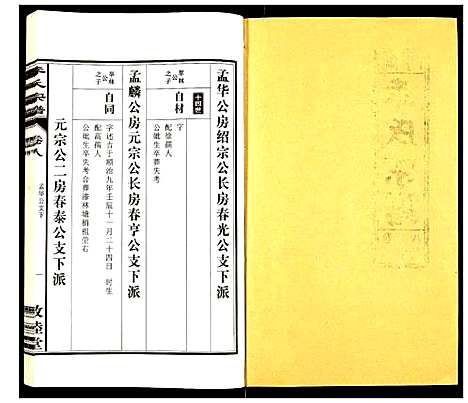 孟华公房绍宗公长房春光公支下派
十四世
翠林公之子
自材
字
配徐孺人
公妣生卒葬失考
孟麟公房元宗公长房春亨公支下派
翠林公之子
自同
字述吉于顺治九年壬辰十一月二十四日 时生
配高孺人
公妣生卒失考合葬漆林塘梢祖茔右
元宗公二房春泰公支下派
氏宗谱
卷八
孟华公支下
一
敦睦堂